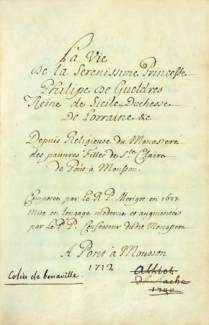 La Vie
De la Serenissime Princesse
Philipe de Gueldres
Reine de Sicile, Duchesse
de Lorraine &c
Depuis Religieuse du Monastere
des pauvres Filles de Ste Claire
de Pont à Mousson.
Composée par le R. P. Merigot en 1627
Mise en langage moderne et augmentée
par le R. P. Confesseur dudit Monastere
A Pont à Mousson
1712
Colin de benaville